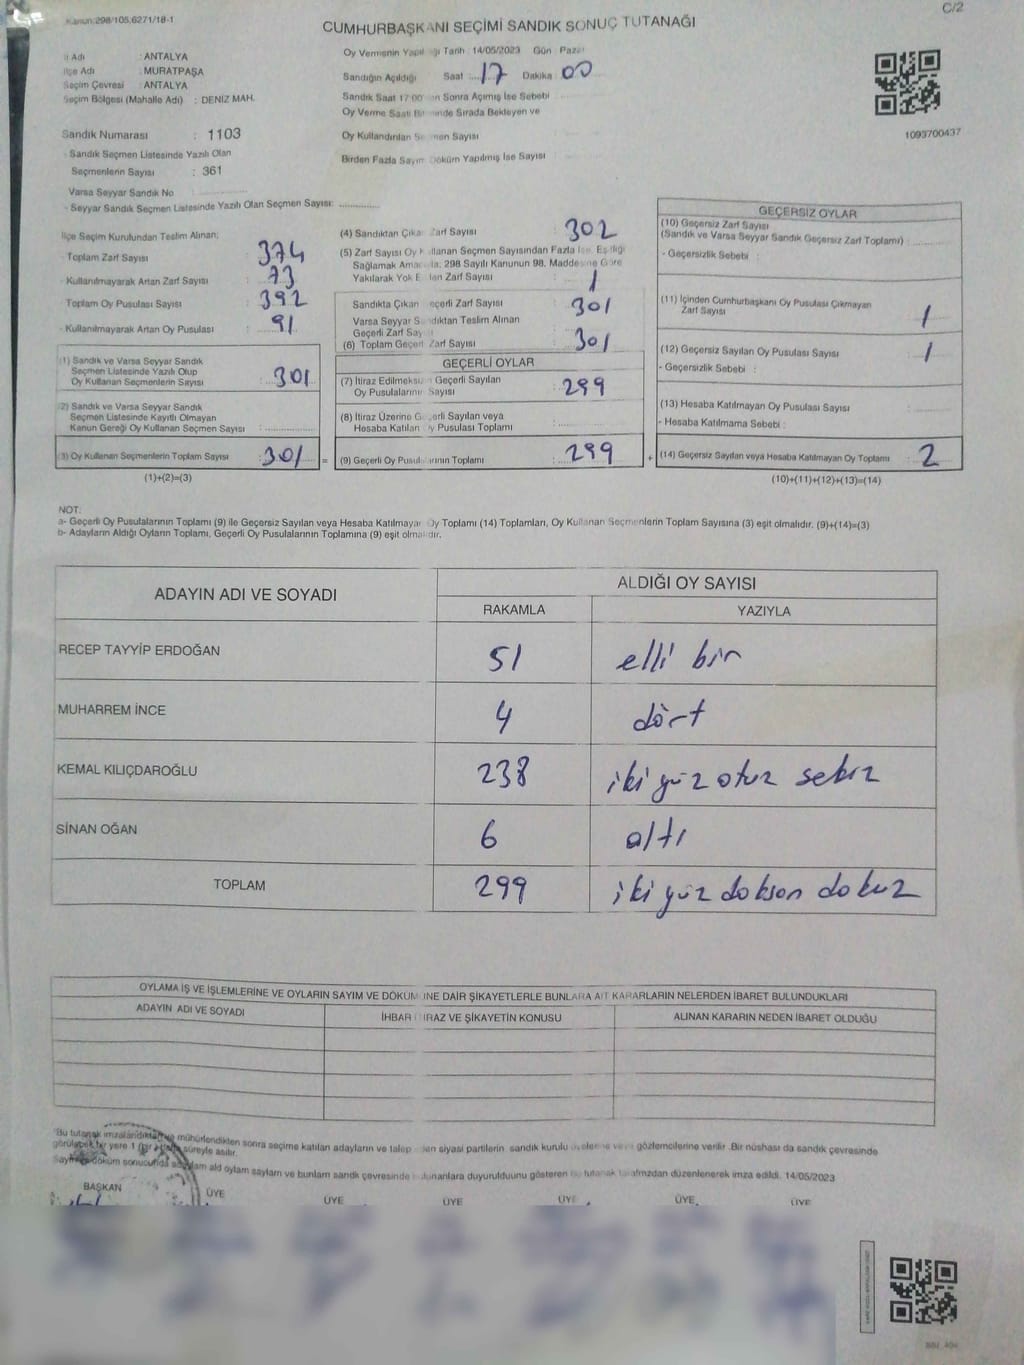 Kanun:298/105,6271/18-1
C/2
CUMHURBAŞKANI SEÇİMİ SANDIK SONUÇ TUTANAĞI
İl Adı : ANTALYA
İlçe Adı : MURATPAŞA
Seçim Çevresi : ANTALYA
Seçim Bölgesi (Mahalle Adı) : DENİZ MAH.
Oy Vermenin Yapıl ğı Tarih 14/05/2023 Gün : Pazar
Sandığın Açıldığı Saat 17 Dakika 00
Sandık Saat 17:00 an Sonra Açımış İse Sebebi
Oy Verme Saati Bi inde Sırada Bekleyen ve
Oy Kullandırılan Se men Sayısı
Birden Fazla Sayım Döküm Yapılmış İse Sayısı
1093700437
Sandık Numarası : 1103
Sandık Seçmen Listesinde Yazılı Olan
Seçmenlerin Sayısı : 361
Varsa Seyyar Sandık No
- Seyyar Sandık Seçmen Listesinde Yazılı Olan Seçmen Sayısı:
İlçe Seçim Kurulundan Teslim Alınan;
Toplam Zarf Sayısı : 374
- Kullanılmayarak Artan Zarf Sayısı : 73
Toplam Oy Pusulası Sayısı : 392
- Kullanılmayarak Artan Oy Pusulası : 91
(1) Sandık ve Varsa Seyyar Sandık
Seçmen Listesinde Yazılı Olup
Oy Kullanan Seçmenlerin Sayısı : 301
(2) Sandık ve Varsa Seyyar Sandık
Seçmen Listesinde Kayıtlı Olmayan
Kanun Gereği Oy Kullanan Seçmen Sayısı :
(3) Oy Kullanan Seçmenlerin Toplam Sayısı : 301 =
(1)+(2)=(3)
(4) Sandıktan Çıka Zarf Sayısı 302
(5) Zarf Sayısı Oy K llanan Seçmen Sayısından Fazla İse, Eşitliği
Sağlamak Amacıyla, 298 Sayılı Kanunun 98. Maddesine Göre
Yakılarak Yok E len Zarf Sayısı 1
Sandıkta Çıkan eçerli Zarf Sayısı 301
Varsa Seyyar S ndıktan Teslim Alınan
Geçerli Zarf Say
(6) Toplam Geçerl Zarf Sayısı : 301
GEÇERLİ OYLAR
(7) İtiraz Edilmeksi n Geçerli Sayılan
Oy Pusulalarının Sayısı : 299
(8) İtiraz Üzerine G erli Sayılan veya
Hesaba Katılan y Pusulası Toplamı
(9) Geçerli Oy Pusul arının Toplamı : 299 +
GEÇERSİZ OYLAR
(10) Geçersiz Zarf Sayısı
(Sandık ve Varsa Seyyar Sandık Geçersiz Zarf Toplamı) :
- Geçersizlik Sebebi :
(11) İçinden Cumhurbaşkanı Oy Pusulası Çıkmayan
Zarf Sayısı 1
(12) Geçersiz Sayılan Oy Pusulası Sayısı : 1
- Geçersizlik Sebebi :
(13) Hesaba Katılmayan Oy Pusulası Sayısı
- Hesaba Katılmama Sebebi :
(14) Geçersiz Sayılan veya Hesaba Katılmayan Oy Toplamı : 2
(10)+(11)+(12)+(13)=(14)
NOT:
a- Geçerli Oy Pusulalarının Toplamı (9) ile Geçersiz Sayılan veya Hesaba Katılmayan Oy Toplamı (14) Toplamları, Oy Kullanan Seçmenlerin Toplam Sayısına (3) eşit olmalıdır. (9)+(14)=(3)
b- Adayların Aldığı Oyların Toplamı, Geçerli Oy Pusulalarının Toplamına (9) eşit olmalıdır.
ADAYIN ADI VE SOYADI
ALDIĞI OY SAYISI
RAKAMLA YAZIYLA
RECEP TAYYİP ERDOĞAN 51 elli bir
MUHARREM İNCE 4 dört
KEMAL KILIÇDAROĞLU 238 iki yüz otuz sekiz
SİNAN OĞAN 6 altı
TOPLAM 299 iki yüz dokson dokuz
OYLAMA İŞ VE İŞLEMLERİNE VE OYLARIN SAYIM VE DÖKÜM NE DAİR ŞİKAYETLERLE BUNLARA AİT KARARLARIN NELERDEN İBARET BULUNDUKLARI
ADAYIN ADI VE SOYADI İHBAR İTİRAZ VE ŞİKAYETİN KONUSU ALINAN KARARIN NEDEN İBARET OLDUĞU
Bu tutanak imzalandıktan ve mühürlendikten sonra seçime katılan adayların ve talep en siyasi partilerin sandık kurulu üyelerine veya gözlemcilerine verilir. Bir nüshası da sandık çevresinde
görülebilecek bir yere 1 (bir) hafta süreyle asılır.
Sayım ve döküm sonucunda adayların ald oyların sayıları ve bunların sandık çevresinde bulunanlara duyurulduğunu gösteren bu tutanak tarafımızdan düzenlenerek imza edildi. 14/05/2023
BAŞKAN ÜYE ÜYE ÜYE ÜYE ÜYE ÜYE